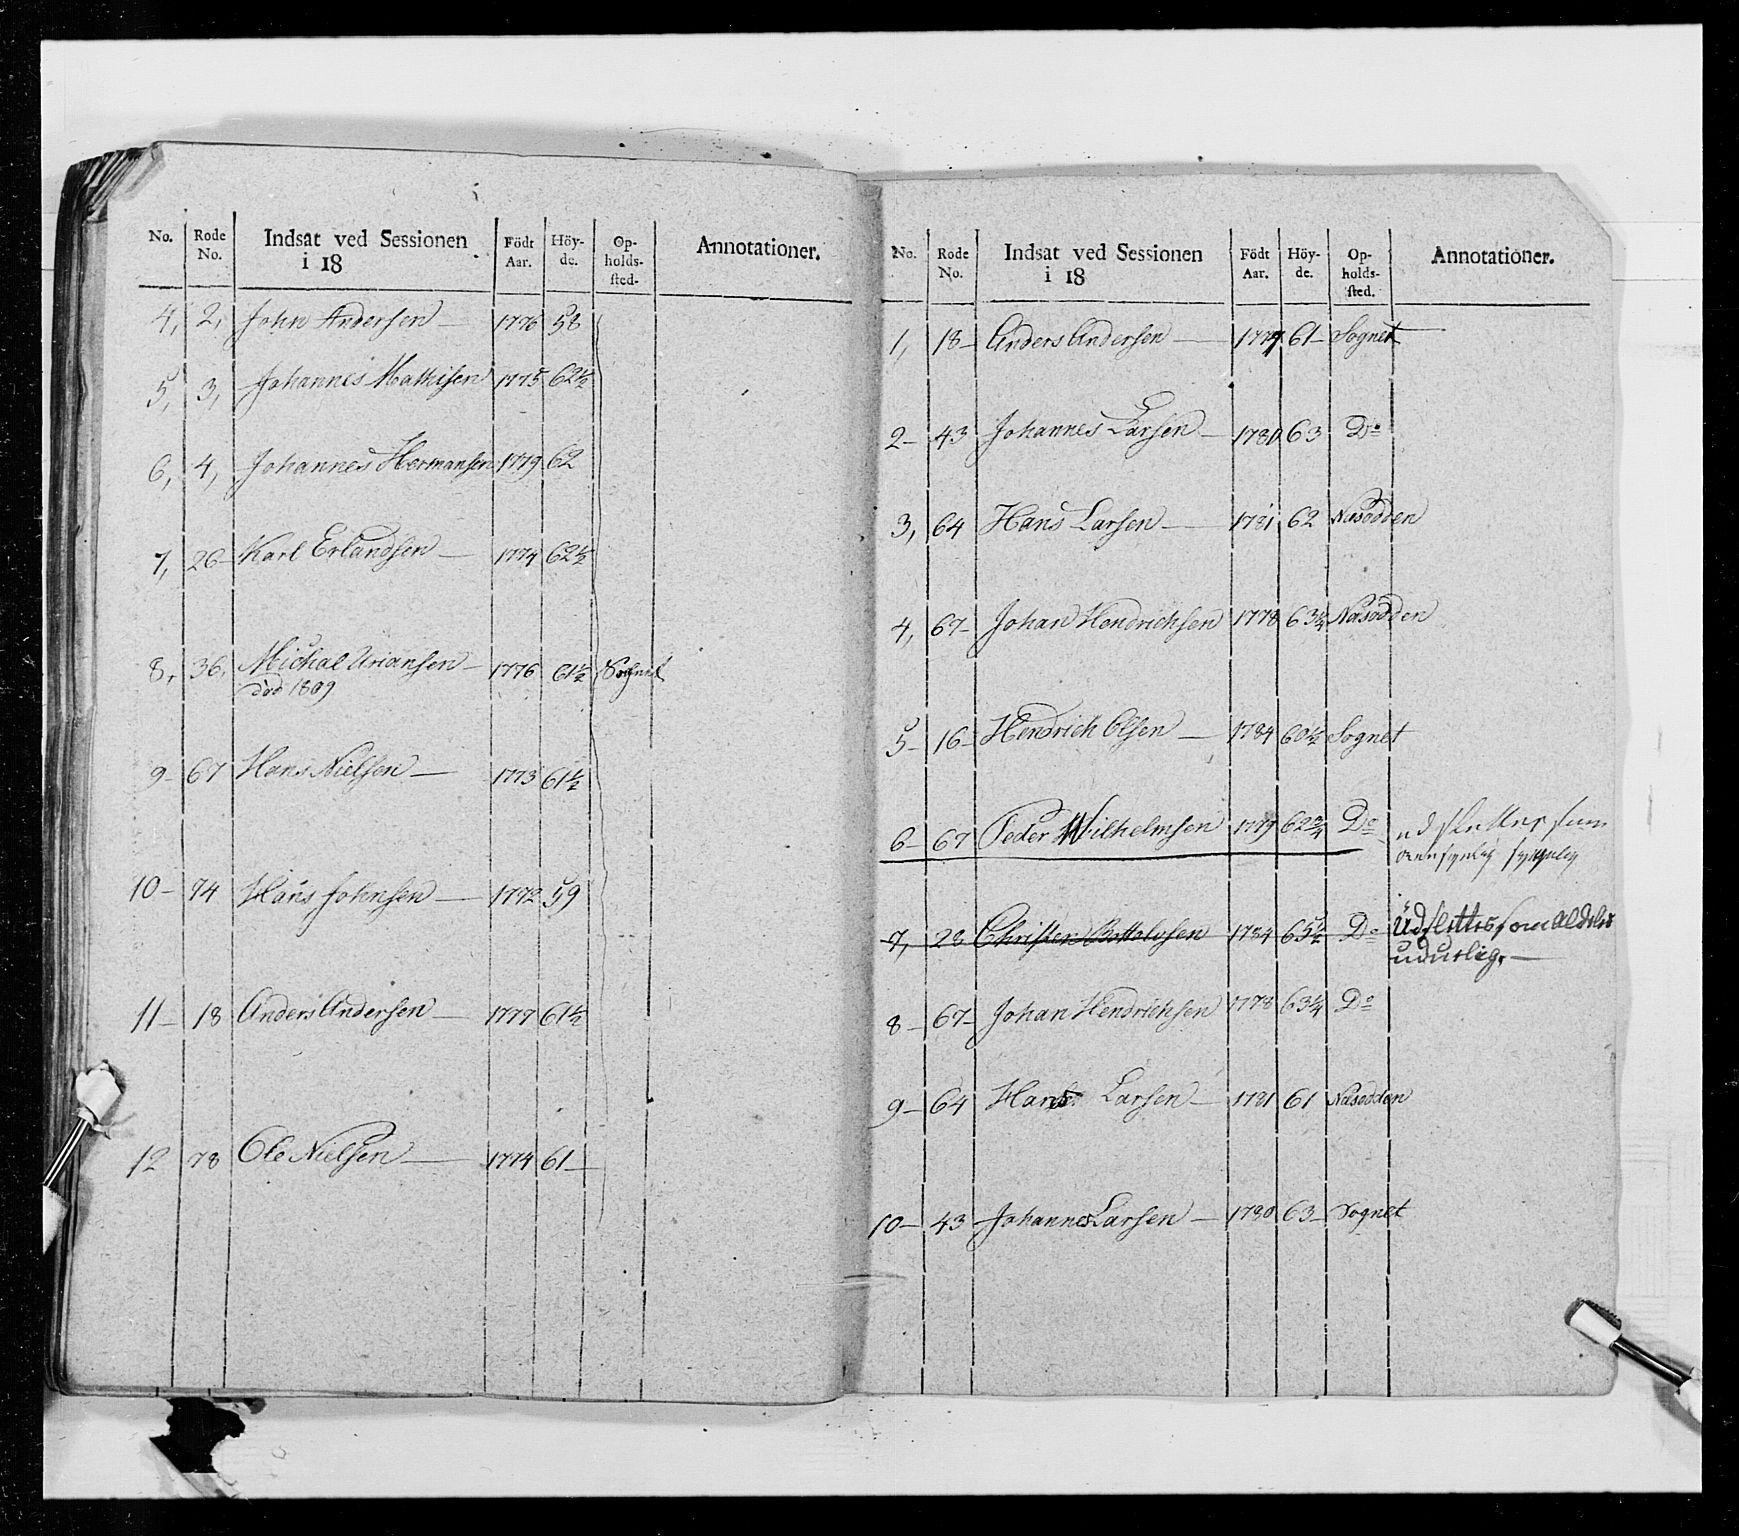 No. Rode No. Indsat ved Sessionen i 18 Födt Aar. Höyde. Opholdssted. Annotationer.
4, 2, John Andersen — 1776 58
5, 3, Johannes Mathisen 1775 62½
6, 4, Johannes Hermansen 1779 62
7, 26 Karl Erlandsen — 1774 62½
8, 36, Michal Uriansen — 1776 61½ Sognet
död 1809
9 – 67 Hans Nielsen — 1773 61½
10 – 74 Hans Johnsen — 1772 59
11 – 18 Anders Andersen — 1777 61½
12 78 Ole Nielsen — 1774 61 —
No. Rode No. Indsat ved Sessionen i 18 Födt Aar. Höyde. Opholdssted. Annotationer.
1, 18 – Anders Andersen — 1777 61 – Sognet
2 – 43 Johannes Larsen — 1780 63 Do
3, 64 Hans Larsen — 1781 62 Nasodden
4, 67 – Johan Hendrichsen 1778 63¼ Nasodden
5 – 16 – Hendrich Olsen — 1784 60½ Sognet
6 – 67 Peder Wilhelmsen 1779 62¾ Do udslettes som
7, 28 Christen Bottolvsen 1784 65½ Do Udslettes som Aldeles
udutlig. —
8 – 67 – Johan Hendrichsen 1778 63¼ Do
9 – 64 Hans Larsen – 1781 61 Nasodden
10 – 43 Johannes Larsen — 1780 63 – Sognet